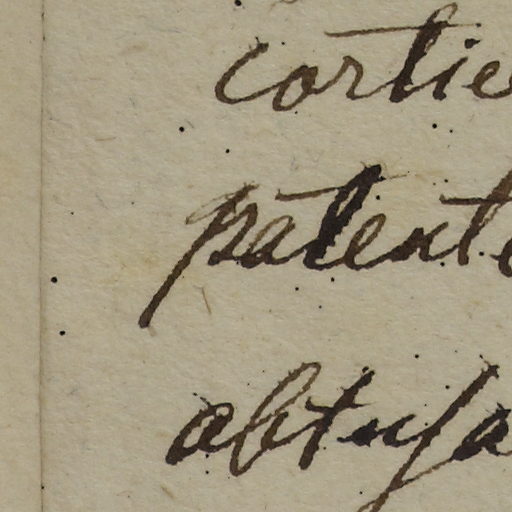 cortie
patente
obtusa